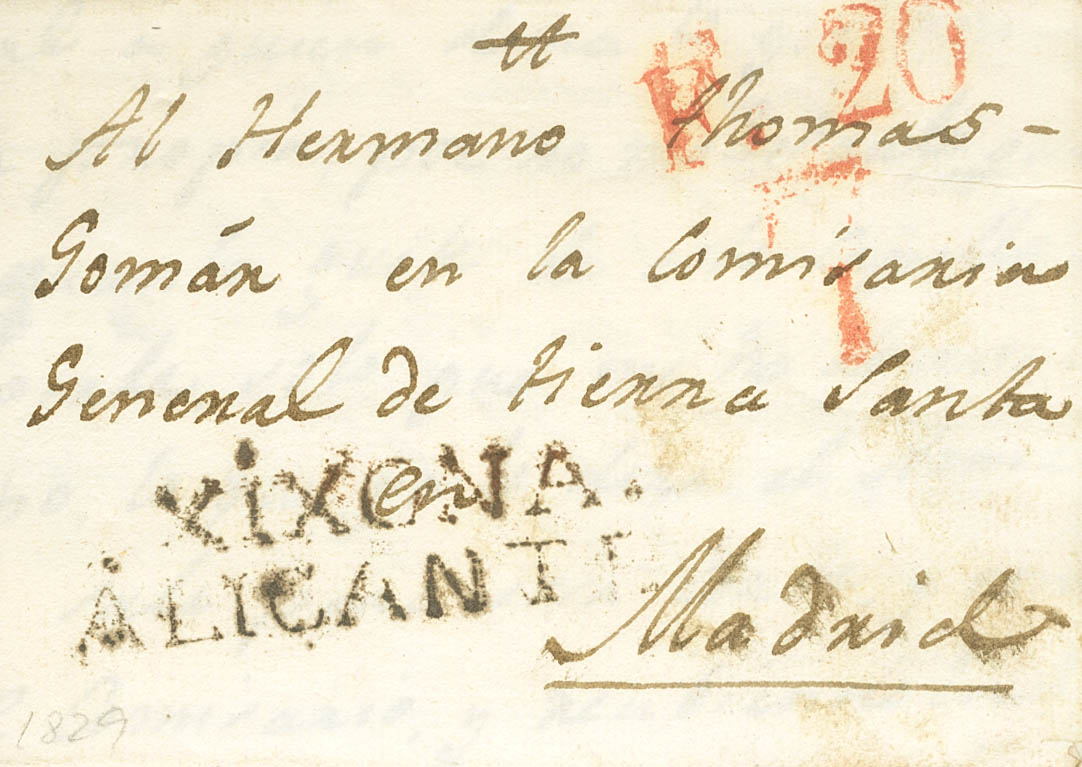 tt
R. 20
Al Hermano Thomas-
Gomár en la Comisaria
General de tierra Santa
en
XIXONA.
ALICANTE.
Madrid
1829